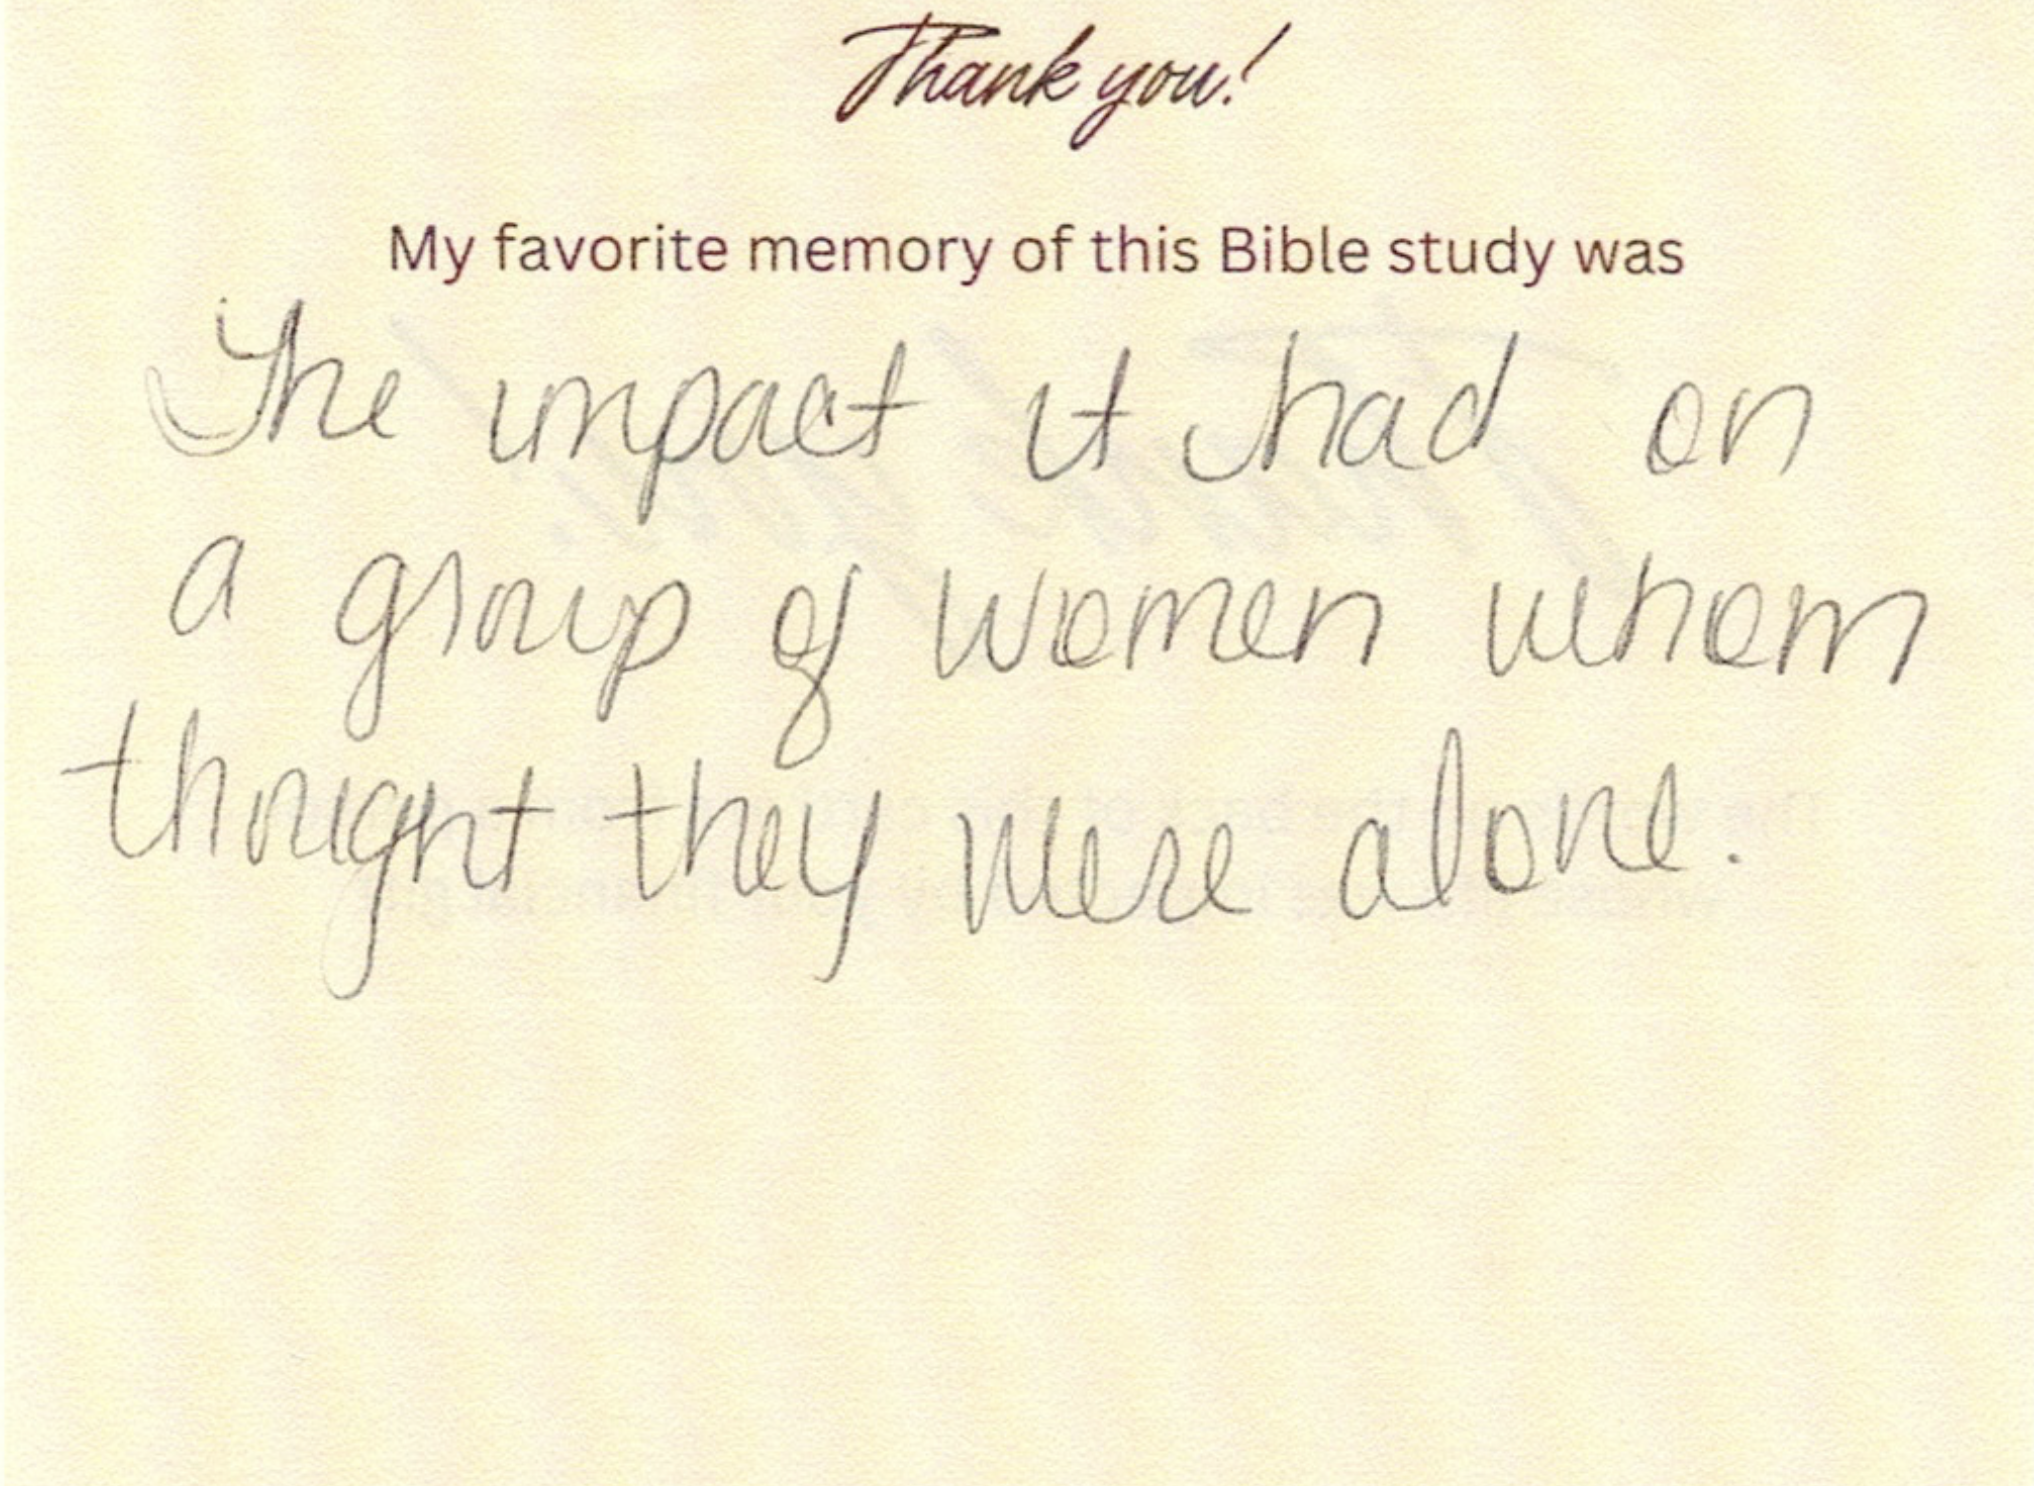 Thank you!
My favorite memory of this Bible study was
The impact it had on
a group of women whom
thought they were alone.